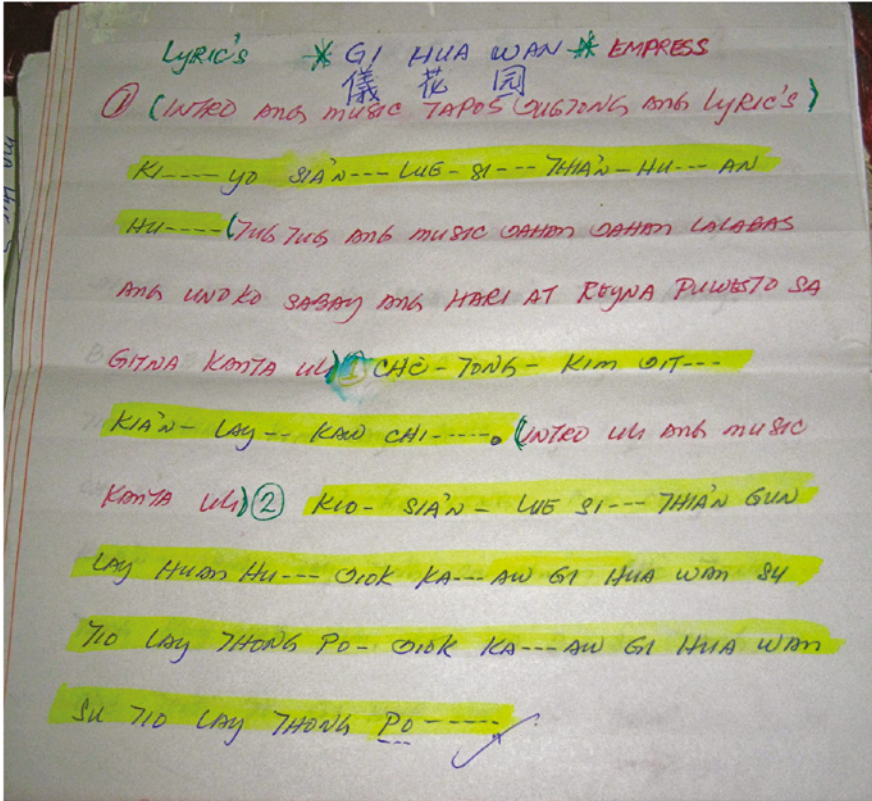 LYRIC'S * GI HUA WAN * EMPRESS
儀 花 园
① (INTRO ANG MUSIC TAPOS DUGTONG ANG LYRIC'S)
KI---- YO SIA'N--- LUE - SI --- THIA'N - HU --- AN
HU----- (TUG TUG ANG MUSIC DAHAN DAHAN LALABAS
ANG UNOKO SABAY ANG HARI AT REYNA PUWESTO SA
GITNA KANTA ULI) ① CHÈ - TONG - KIM DIT---
KIA'N - LAY -- KAW CHI -----. (INTRO ULI ANG MUSIC
KANTA ULI) ② KIO - SIA'N - LUE SI --- THIA'N GUN
LAY HUAN HU --- DIOK KA --- AW GI HUA WAN SU
TIO LAY THONG PO - DIOK KA --- AW GI HUA WAN
SU TIO LAY THONG PO ------